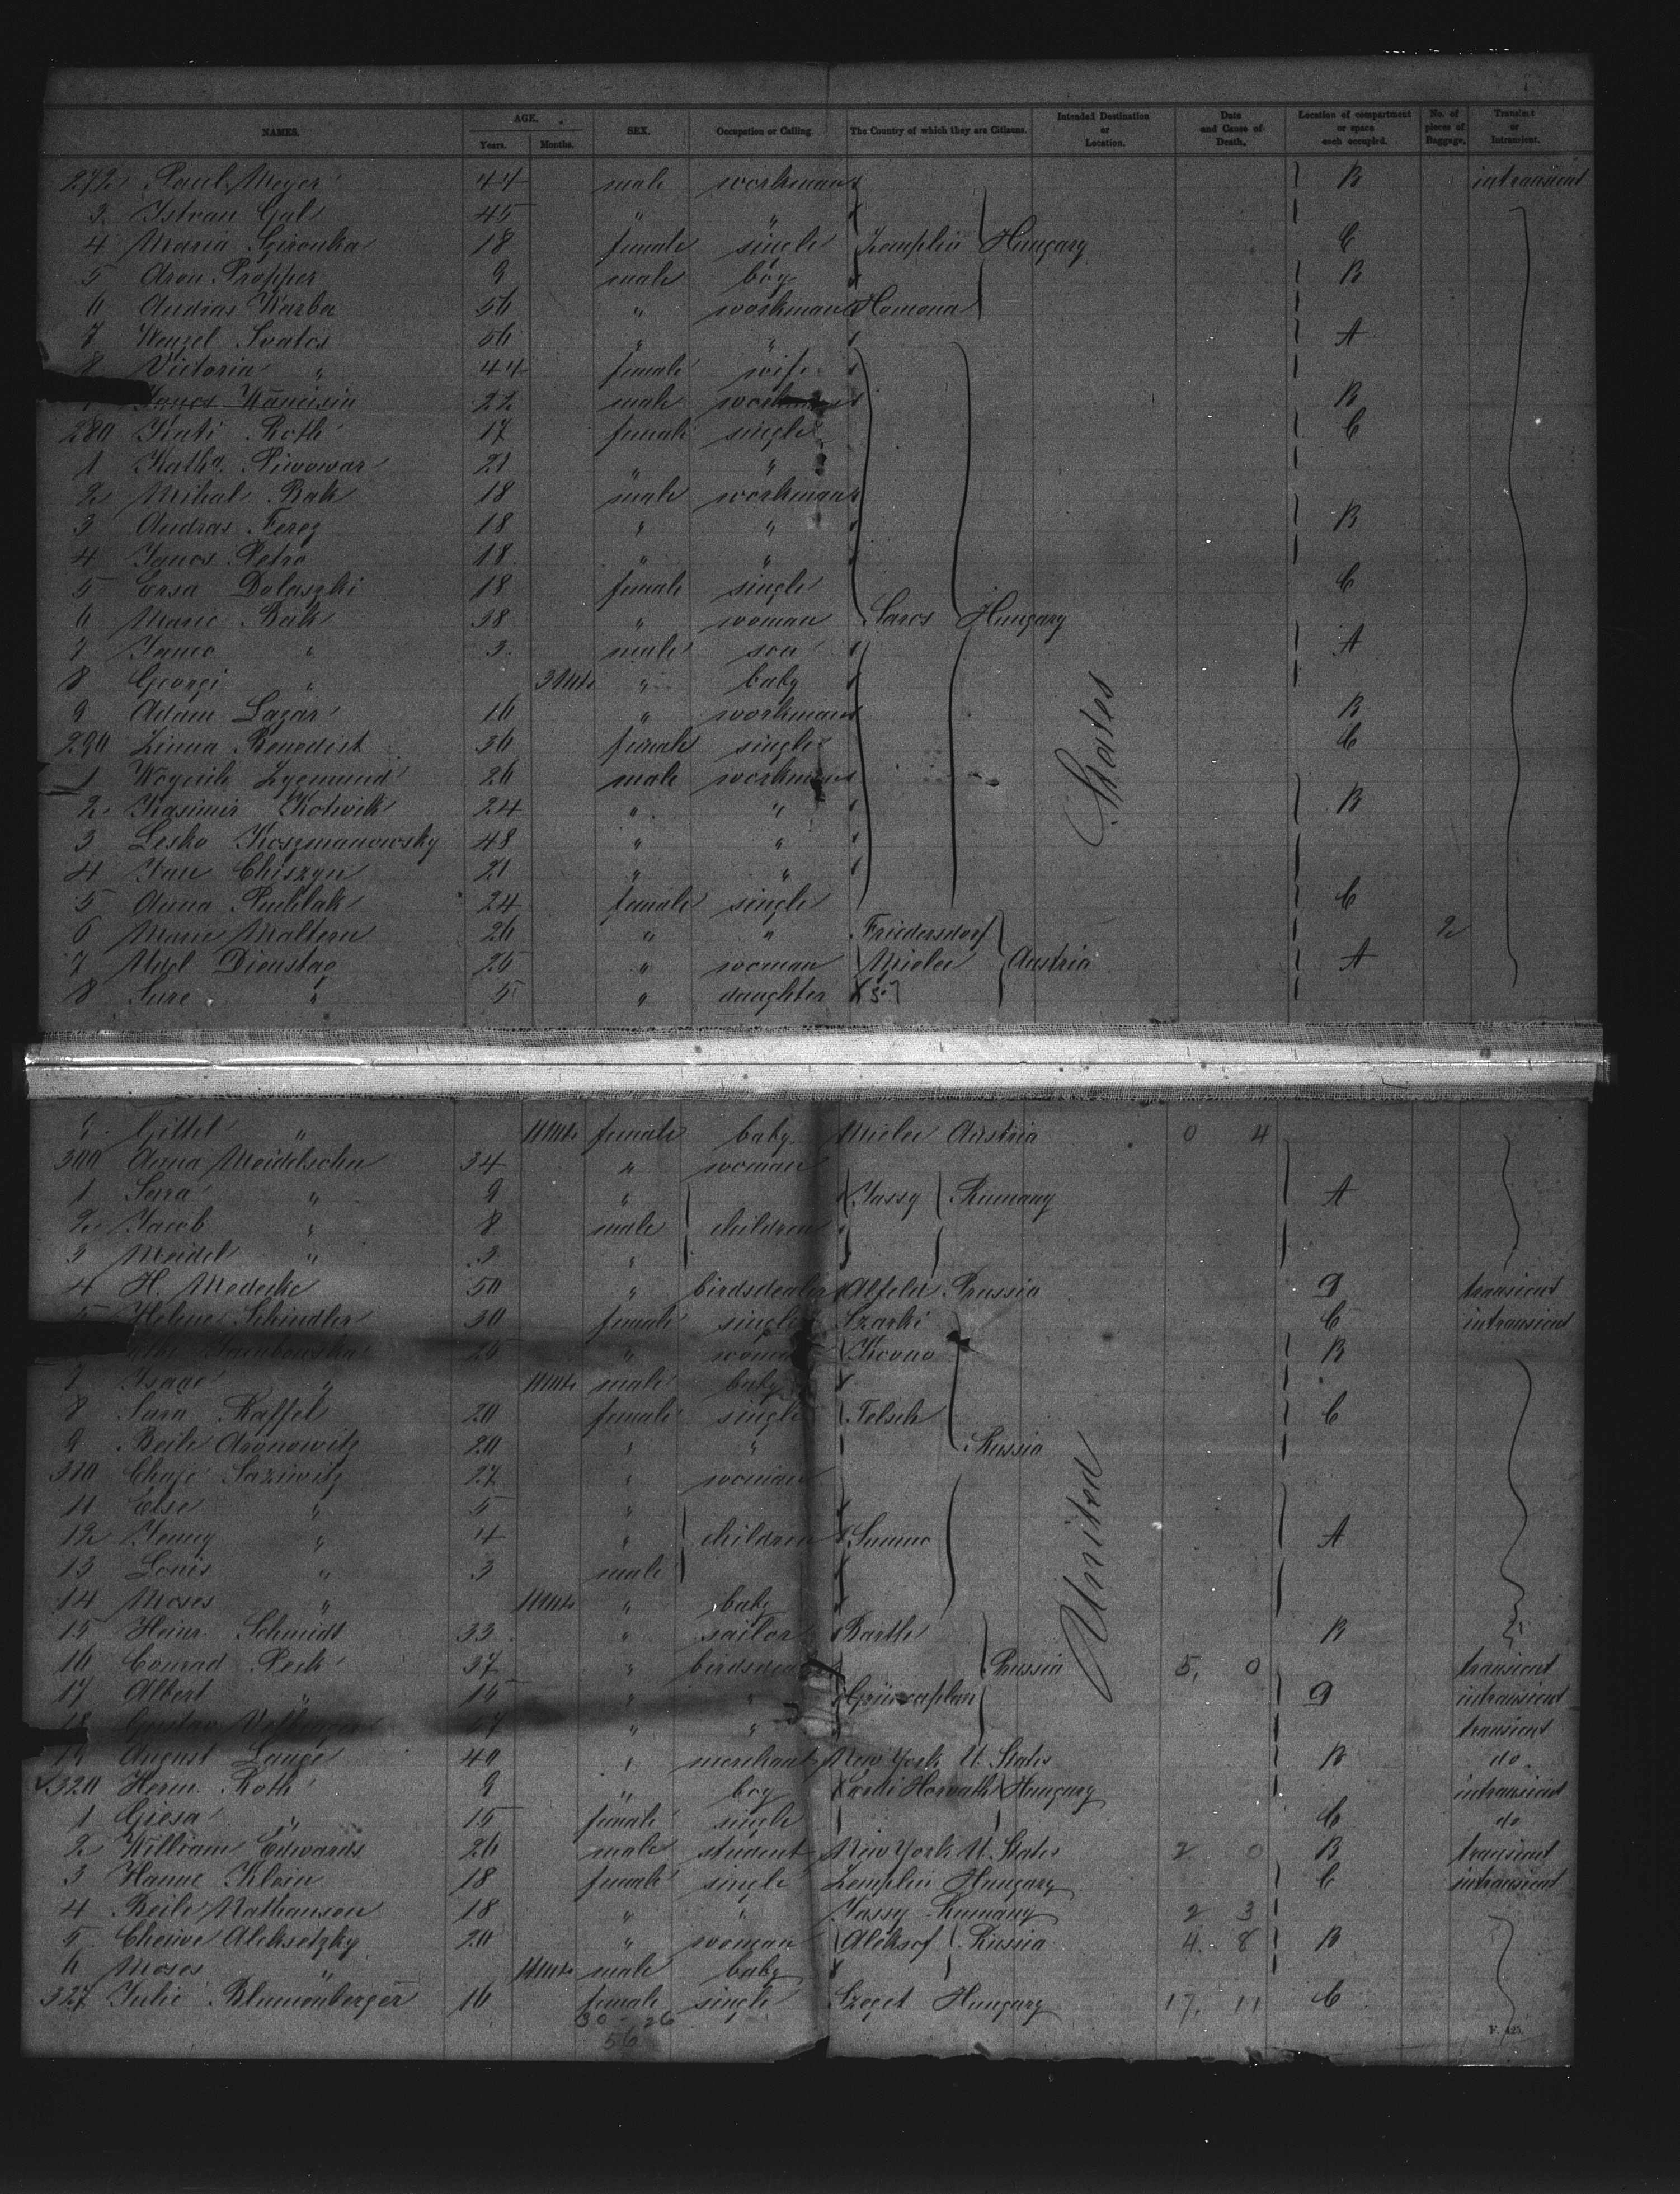 NAMES. AGE. Years. Months. SEX. Occupation or Calling. The Country of which they are Citizens. Intended Destination or Location. Date and Cause of Death. Location of compartment or space each occupied. No. of pieces of Baggage. Transient or Intransient.
272 Paul Meyer 44 male workman B intransient
3 Istvan Gal 45 " "
4 Maria 18 female single Zemplin Hungary C
5 Aron Propper 9 male boy B
6 Andras Warba 56 " workman Homona
7 Wenzel Svatos 56 " " A
8 Victoria " 44 female wife
Janos 22 male B
280 Kati Roth 17 female single C
1 Kath^a Piwowar 21 " "
2 Mihal Bak 18 male workman
3 Andras Ferez 18 " " B
4 Janos Petro 18 " "
5 Ersa Dolaszki 18 female single C
6 Marie Bak 38 " woman Saros Hungary
7 Janco " 3 male son A
8 Georgi " 3 Mts " baby
9 Adam Lazar 16 " workman B
290 Linna Benedist 36 female single C
1 Woyciech Zygmund 26 male workman
2 Kasimir Kotwik 24 " " B
3 Lesko Koszmanowsky 48 " "
4 Jan Chiszyn 21 " "
5 Anna 24 female single C
6 Marie Maltern 26 " " Friedersdorf 2
7 Adel Dienstag 25 " woman Mielec Austria A
8 Sure " 5 " daughter
States
9 Gittel " 11 Mts female baby Mielec Austria 0 4
300 Anna Meidelsohn 34 " woman
1 Sara " 9 " Jassy Rumany A
2 Jacob " 8 male children
3 Meidel " 3 "
4 H. Medecke 50 " birdsdealer Alfeld Prussia 9 transient
5 Helene Schindler 30 female single Szarki C intransient
25 " woman Kovno B
7 Isaac " 11 Mts male baby
8 Sara Raffel 20 female single Telsch C
9 Beile Aronowitz 20 " " Russia
310 Chaje 27 " woman
11 Else " 5 "
12 Jenny " 4 " children A
13 Louis " 3 male
14 Moses " 11 Mts " baby
15 Heinr. Schmidt 33 " sailor Barthe B
16 Conrad Peck 37 " Prussia 5, 0 transient
17 Albert " 15 " " Grünenplan 9 intransient
18 Gustav " " transient
19 August Lange 40 " merchant New York U. States B do
320 Herm. Roth 9 " boy Horvath Hungary intransient
1 Giesa " 15 female single C do
2 William Edwards 26 male student New York U. States 2 0 B transient
3 Hanne Klein 18 female single Zemplin Hungary C intransient
4 Beile Nathanson 18 " " Jassy Rumany 2 3
5 Cheiwe Aleksetzky 20 " woman Aleksof Russia 4. 8 B
6 Moses " 11 Mts male baby
327 Julie Blumenberger 16 female single Szeget Hungary 17, 11 C
United
30 - 26
56
F. 425.